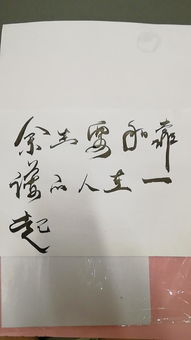 余生要和靠
谱的人在一
起